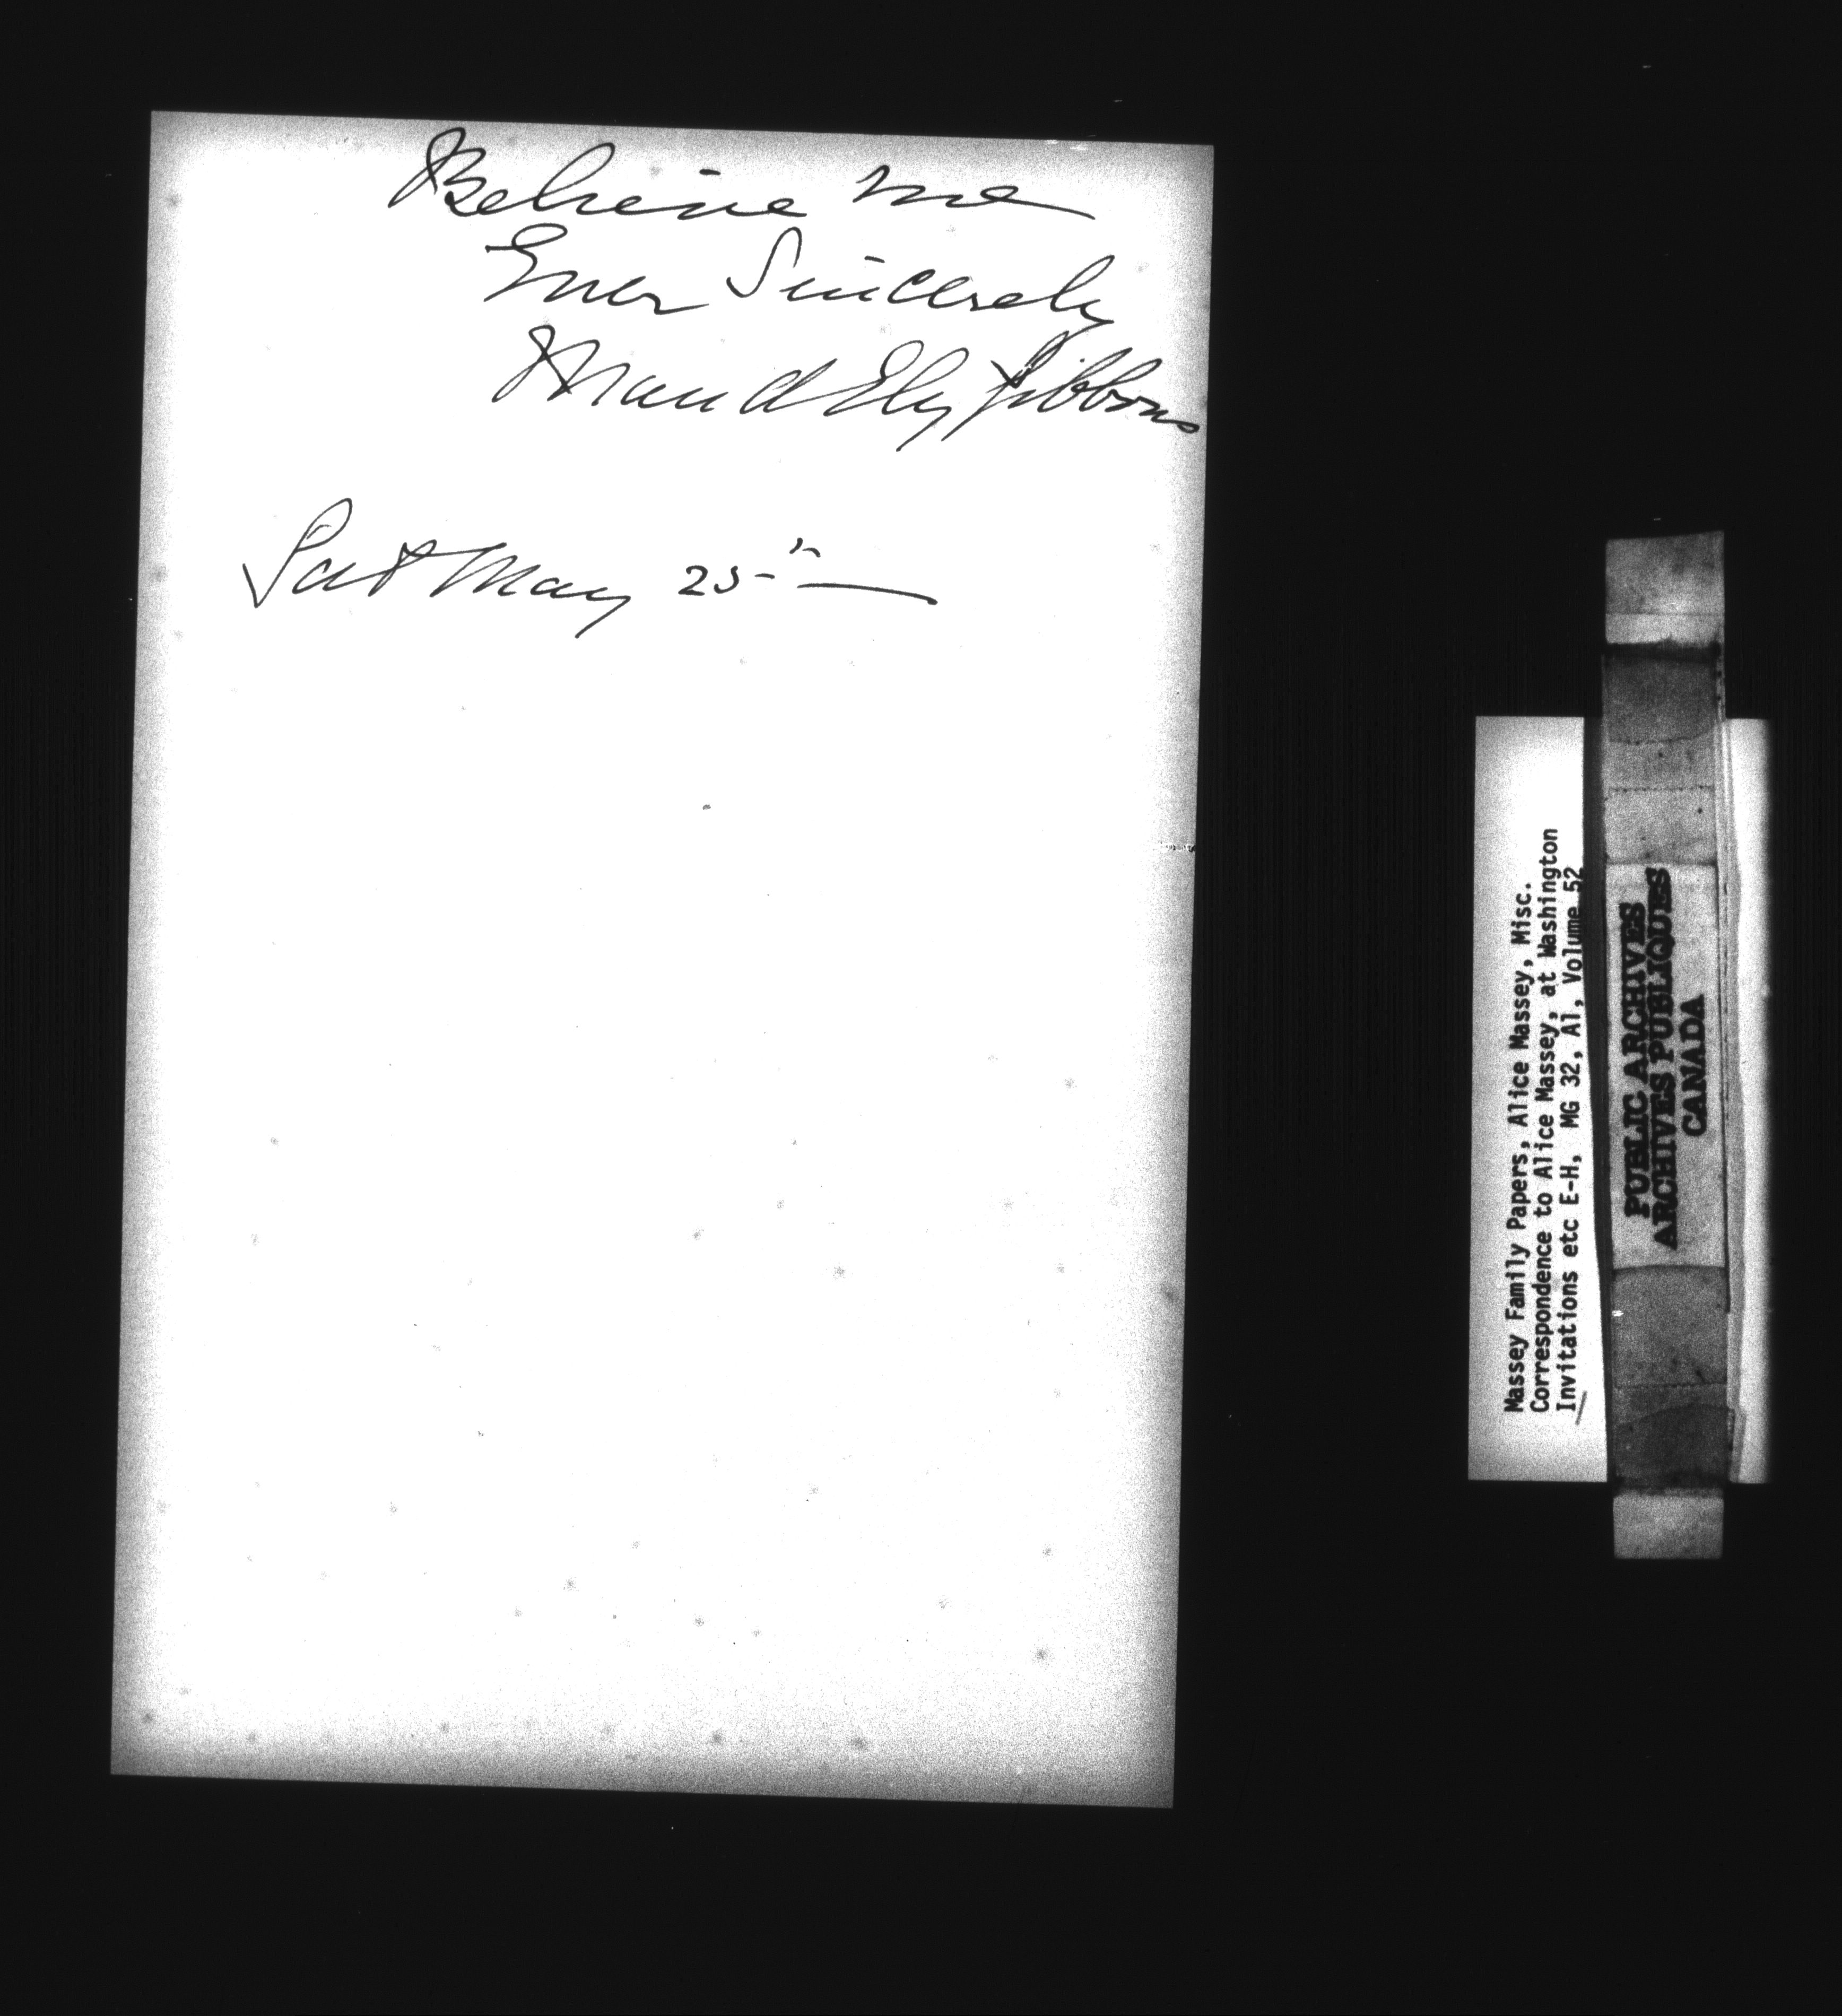 Believe me
Ever Sincerely
Maud Ely Gibbons
Sat May 25"
Massey Family Papers, Alice Massey, Misc.
Correspondence to Alice Massey, at Washington
Invitations etc E-H, MG 32, A1, Volume 52
PUBLIC ARCHIVES
ARCHIVES PUBLIQUES
CANADA